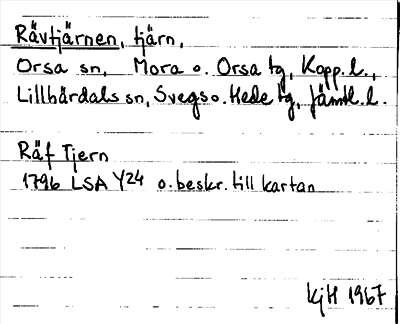 Rävtjärnen, tjärn,
Orsa sn, Mora o. Orsa tg, Kopp. l.,
Lillhärdals sn, Svegs o. Hede tg, Jämtl. l.
Räf Tjern
1796 LSA Y24 o. beskr. till kartan
KjH 1967